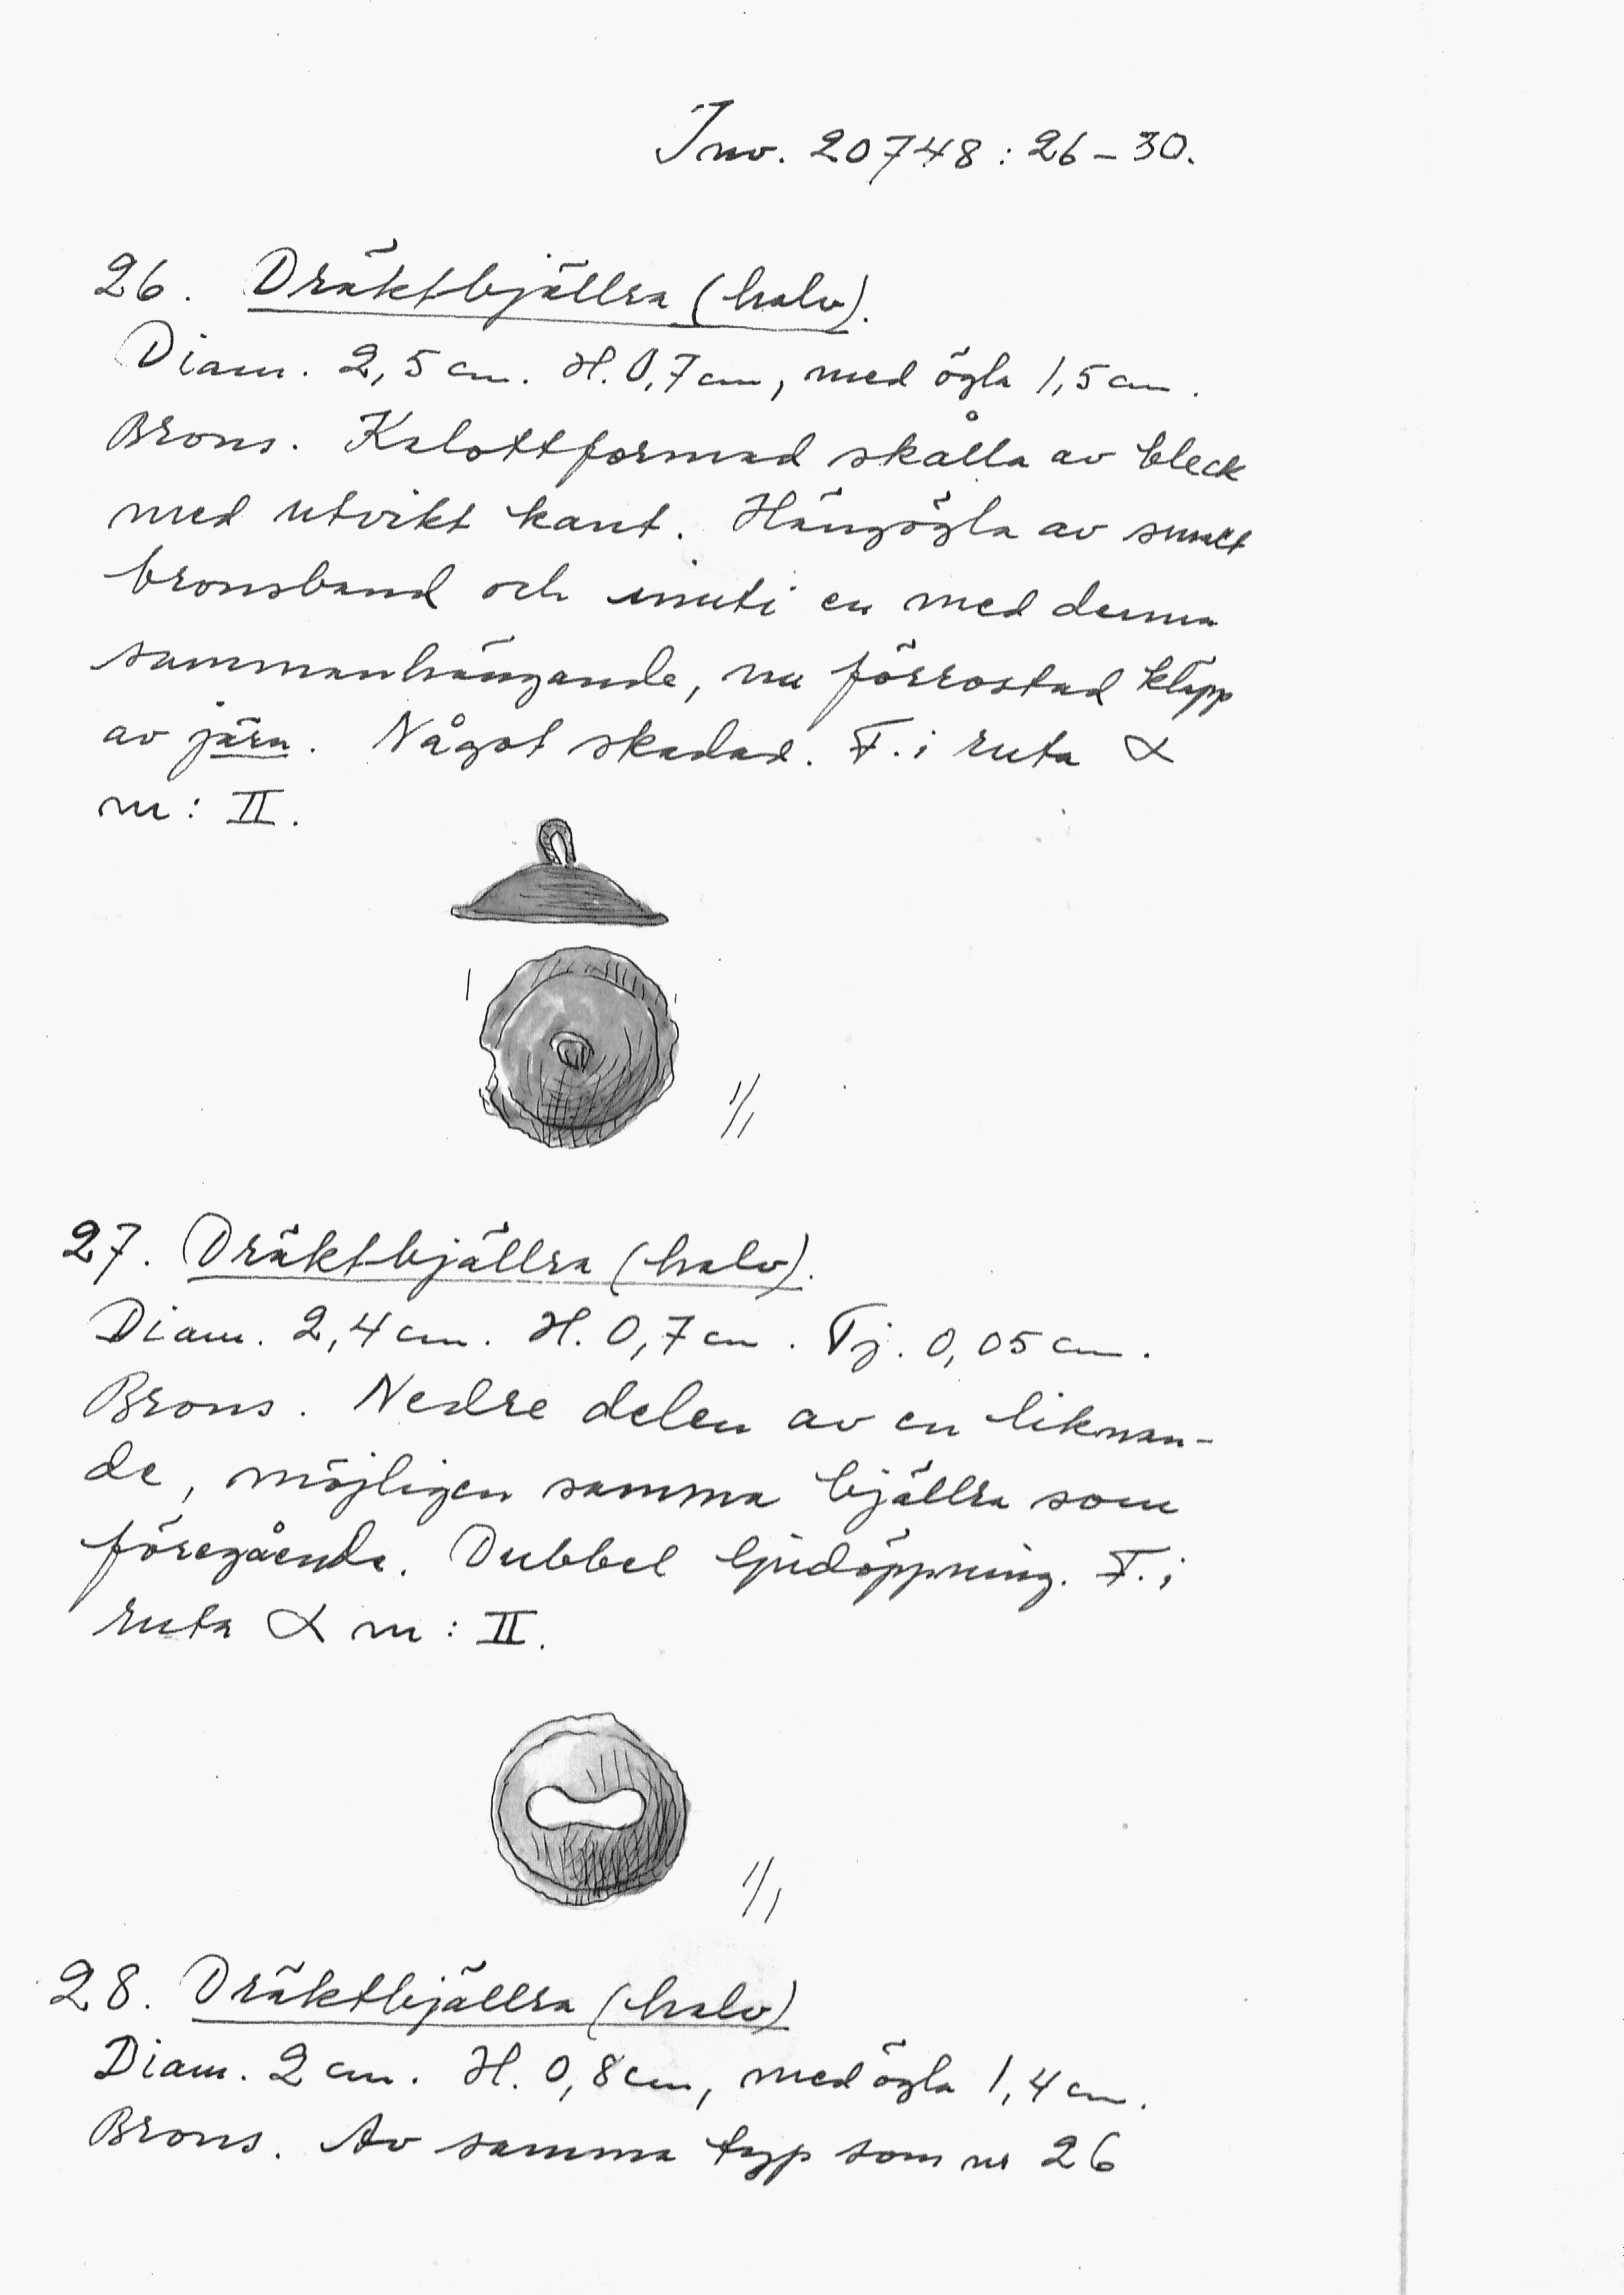 Inv. 20748 : 26 – 30.
26. Dräktbjällra (halv).
Diam. 2,5 cm. H. 0,7 cm, med ögla 1,5 cm.
Brons. Kalottformad skålla av bleck
med utvikt kant. Hängögla av smalt
bronsband och inuti en med denna
sammanhängande, nu förrostad kläpp
av järn. Något skadad. F. i ruta α
m : II.
1/1
27. Dräktbjällra (halv).
Diam. 2,4 cm. H. 0,7 cm. Tj. 0,05 cm.
Brons. Nedre delen av en liknan-
de, möjligen samma bjällra som
föregående. Dubbel ljudöppning. F. i
ruta α m : II.
1/1
28. Dräktbjällra (halv)
Diam. 2 cm. H. 0,8 cm, med ögla 1,4 cm.
Brons. Av samma typ som nr 26